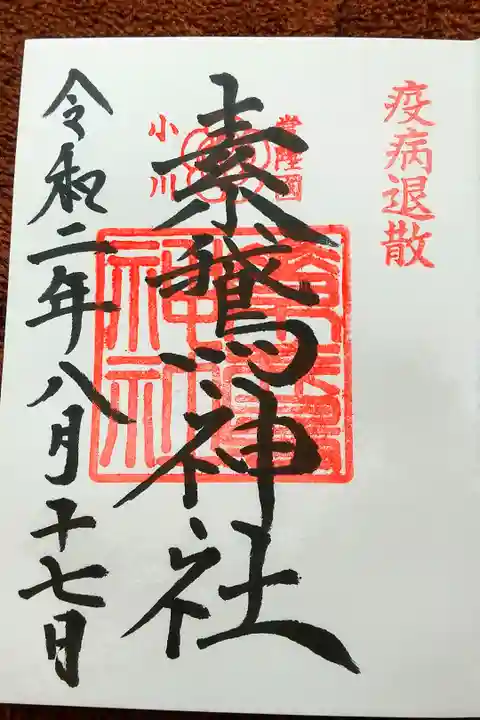 疫病退散
常陸國
小川
素鵞神社
令和二年八月十七日